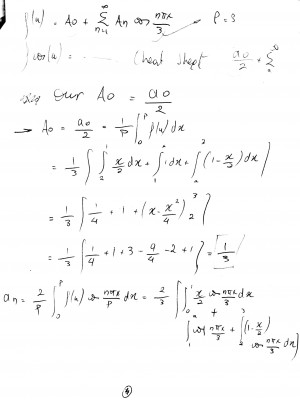 f(x) = A₀ + Σ_{n=1}^{∞} An cos nπx/3 P = 3
cos(x) = ... Cheat sheet a₀/2 + Σ
our A₀ = a₀/2
→ A₀ = a₀/2 = 1/P ∫₀^P f(x) dx
= 1/3 { ∫ x/2 dx + ∫₁² 1 dx + ∫₂³ (1 - x/2) dx }
= 1/3 { 1/4 + 1 + (x - x²/4)₂³ }
= 1/3 { 1/4 + 1 + 3 - 9/4 - 2 + 1 } = 1/3
an = 2/P ∫₀^P f(x) cos nπx/P dx = 2/3 { ∫₀¹ x/2 cos nπx/3 dx
+
∫₁² cos nπx/3 + ∫₂³ (1 - x/2)
cos nπx/3 dx }